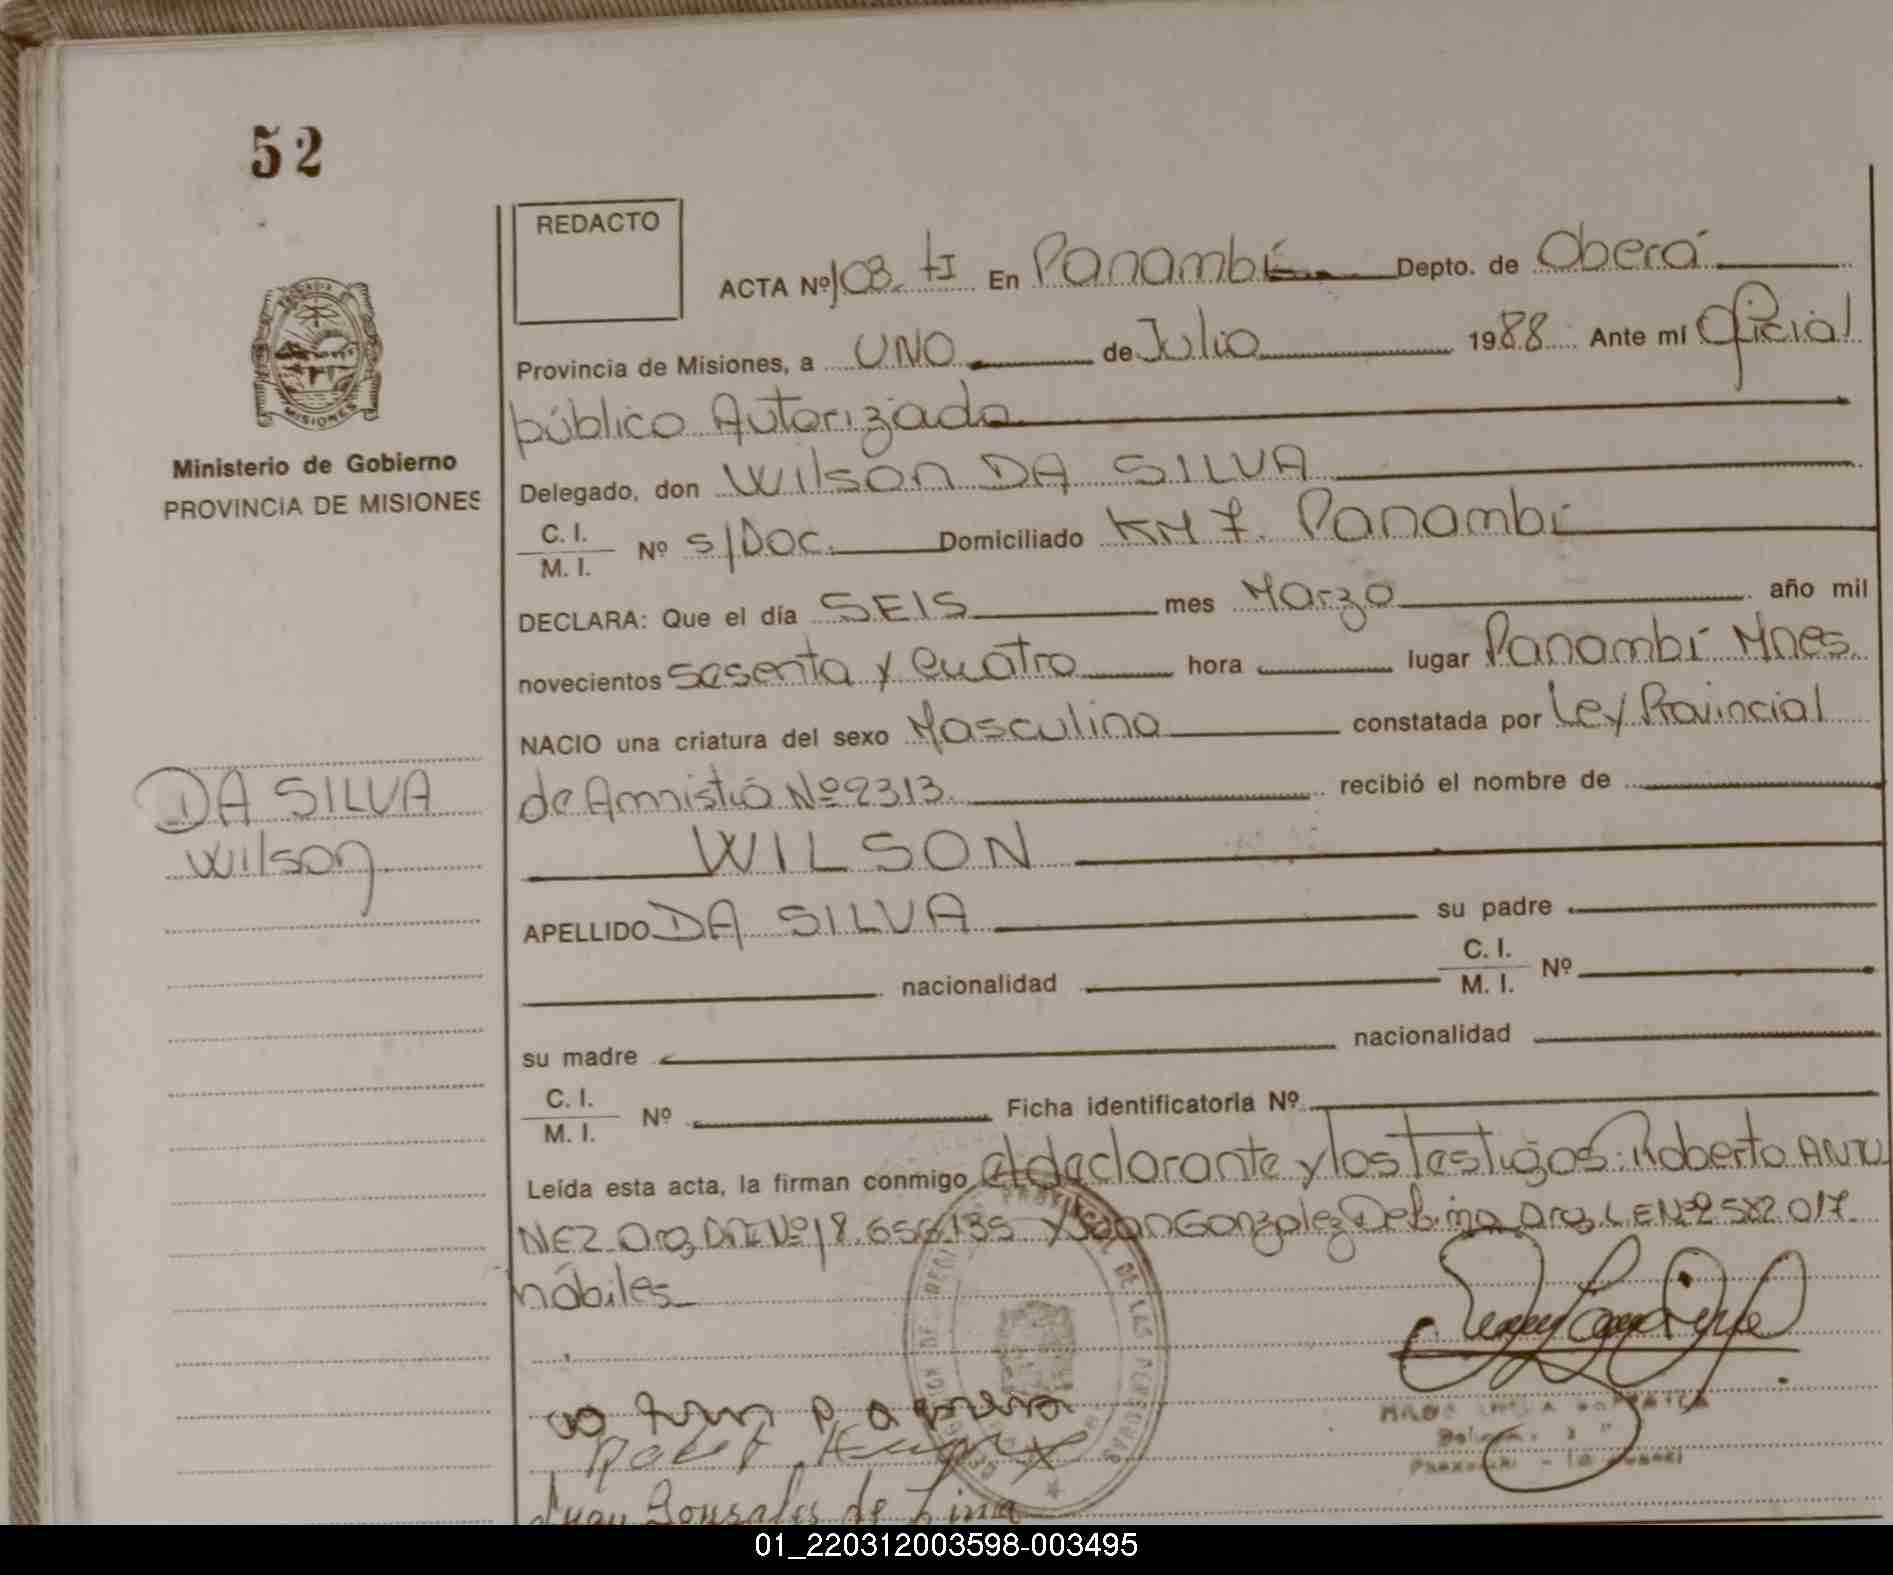 52
REDACTO
ACTA Nº 108. tI En Panambí Depto. de Oberá
Provincia de Misiones, a UNO de Julio 1988 Ante mí Oficial
público Autorizado
Ministerio de Gobierno
PROVINCIA DE MISIONES
Delegado, don Wilson DA SILVA
C. I. / M. I. Nº S/Doc. Domiciliado KM 7. Panambí
DECLARA: Que el día SEIS mes Marzo año mil
novecientos Sesenta y Cuatro hora lugar Panambí Mnes
NACIO una criatura del sexo Masculino constatada por Ley Provincial
DA SILVA
Wilson
de Amnistía Nº 2313. recibió el nombre de
WILSON
APELLIDO DA SILVA su padre
nacionalidad C. I. / M. I. Nº
su madre nacionalidad
C. I. / M. I. Nº Ficha identificatoria Nº
Leída esta acta, la firman conmigo el declarante y los Testigos: Roberto ANTU
NEZ Arg DNI Nº 18.656.135 y Juan Gonzalez De Lima Arg. L E Nº
hábiles
PROVINCIAL DE LAS PERSONAS
Juan Gonsales de Lima
01_220312003598-003495